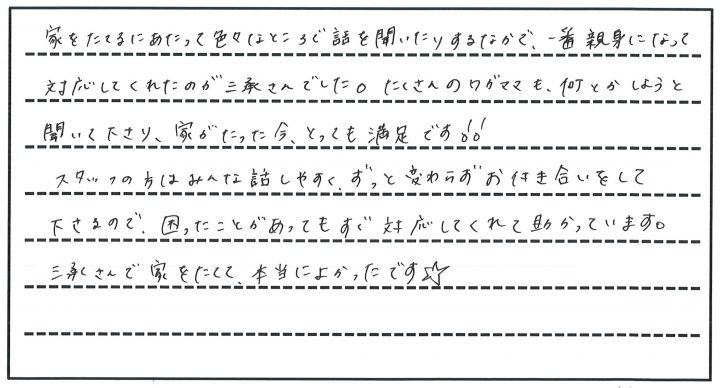 家をたてるにあたって色々なところで話を聞いたりするなかで、一番親身になって
対応してくれたのが三承さんでした。たくさんのワガママも、何とかしようと
聞いて下さり、家がたった今、とっても満足です!!
スタッフの方はみんな話しやすく、ずっと変わらずお付き合いをして
下さるので、困ったことがあってもすぐ対応してくれて助かっています。
三承さんで家をたてて、本当によかったです☆